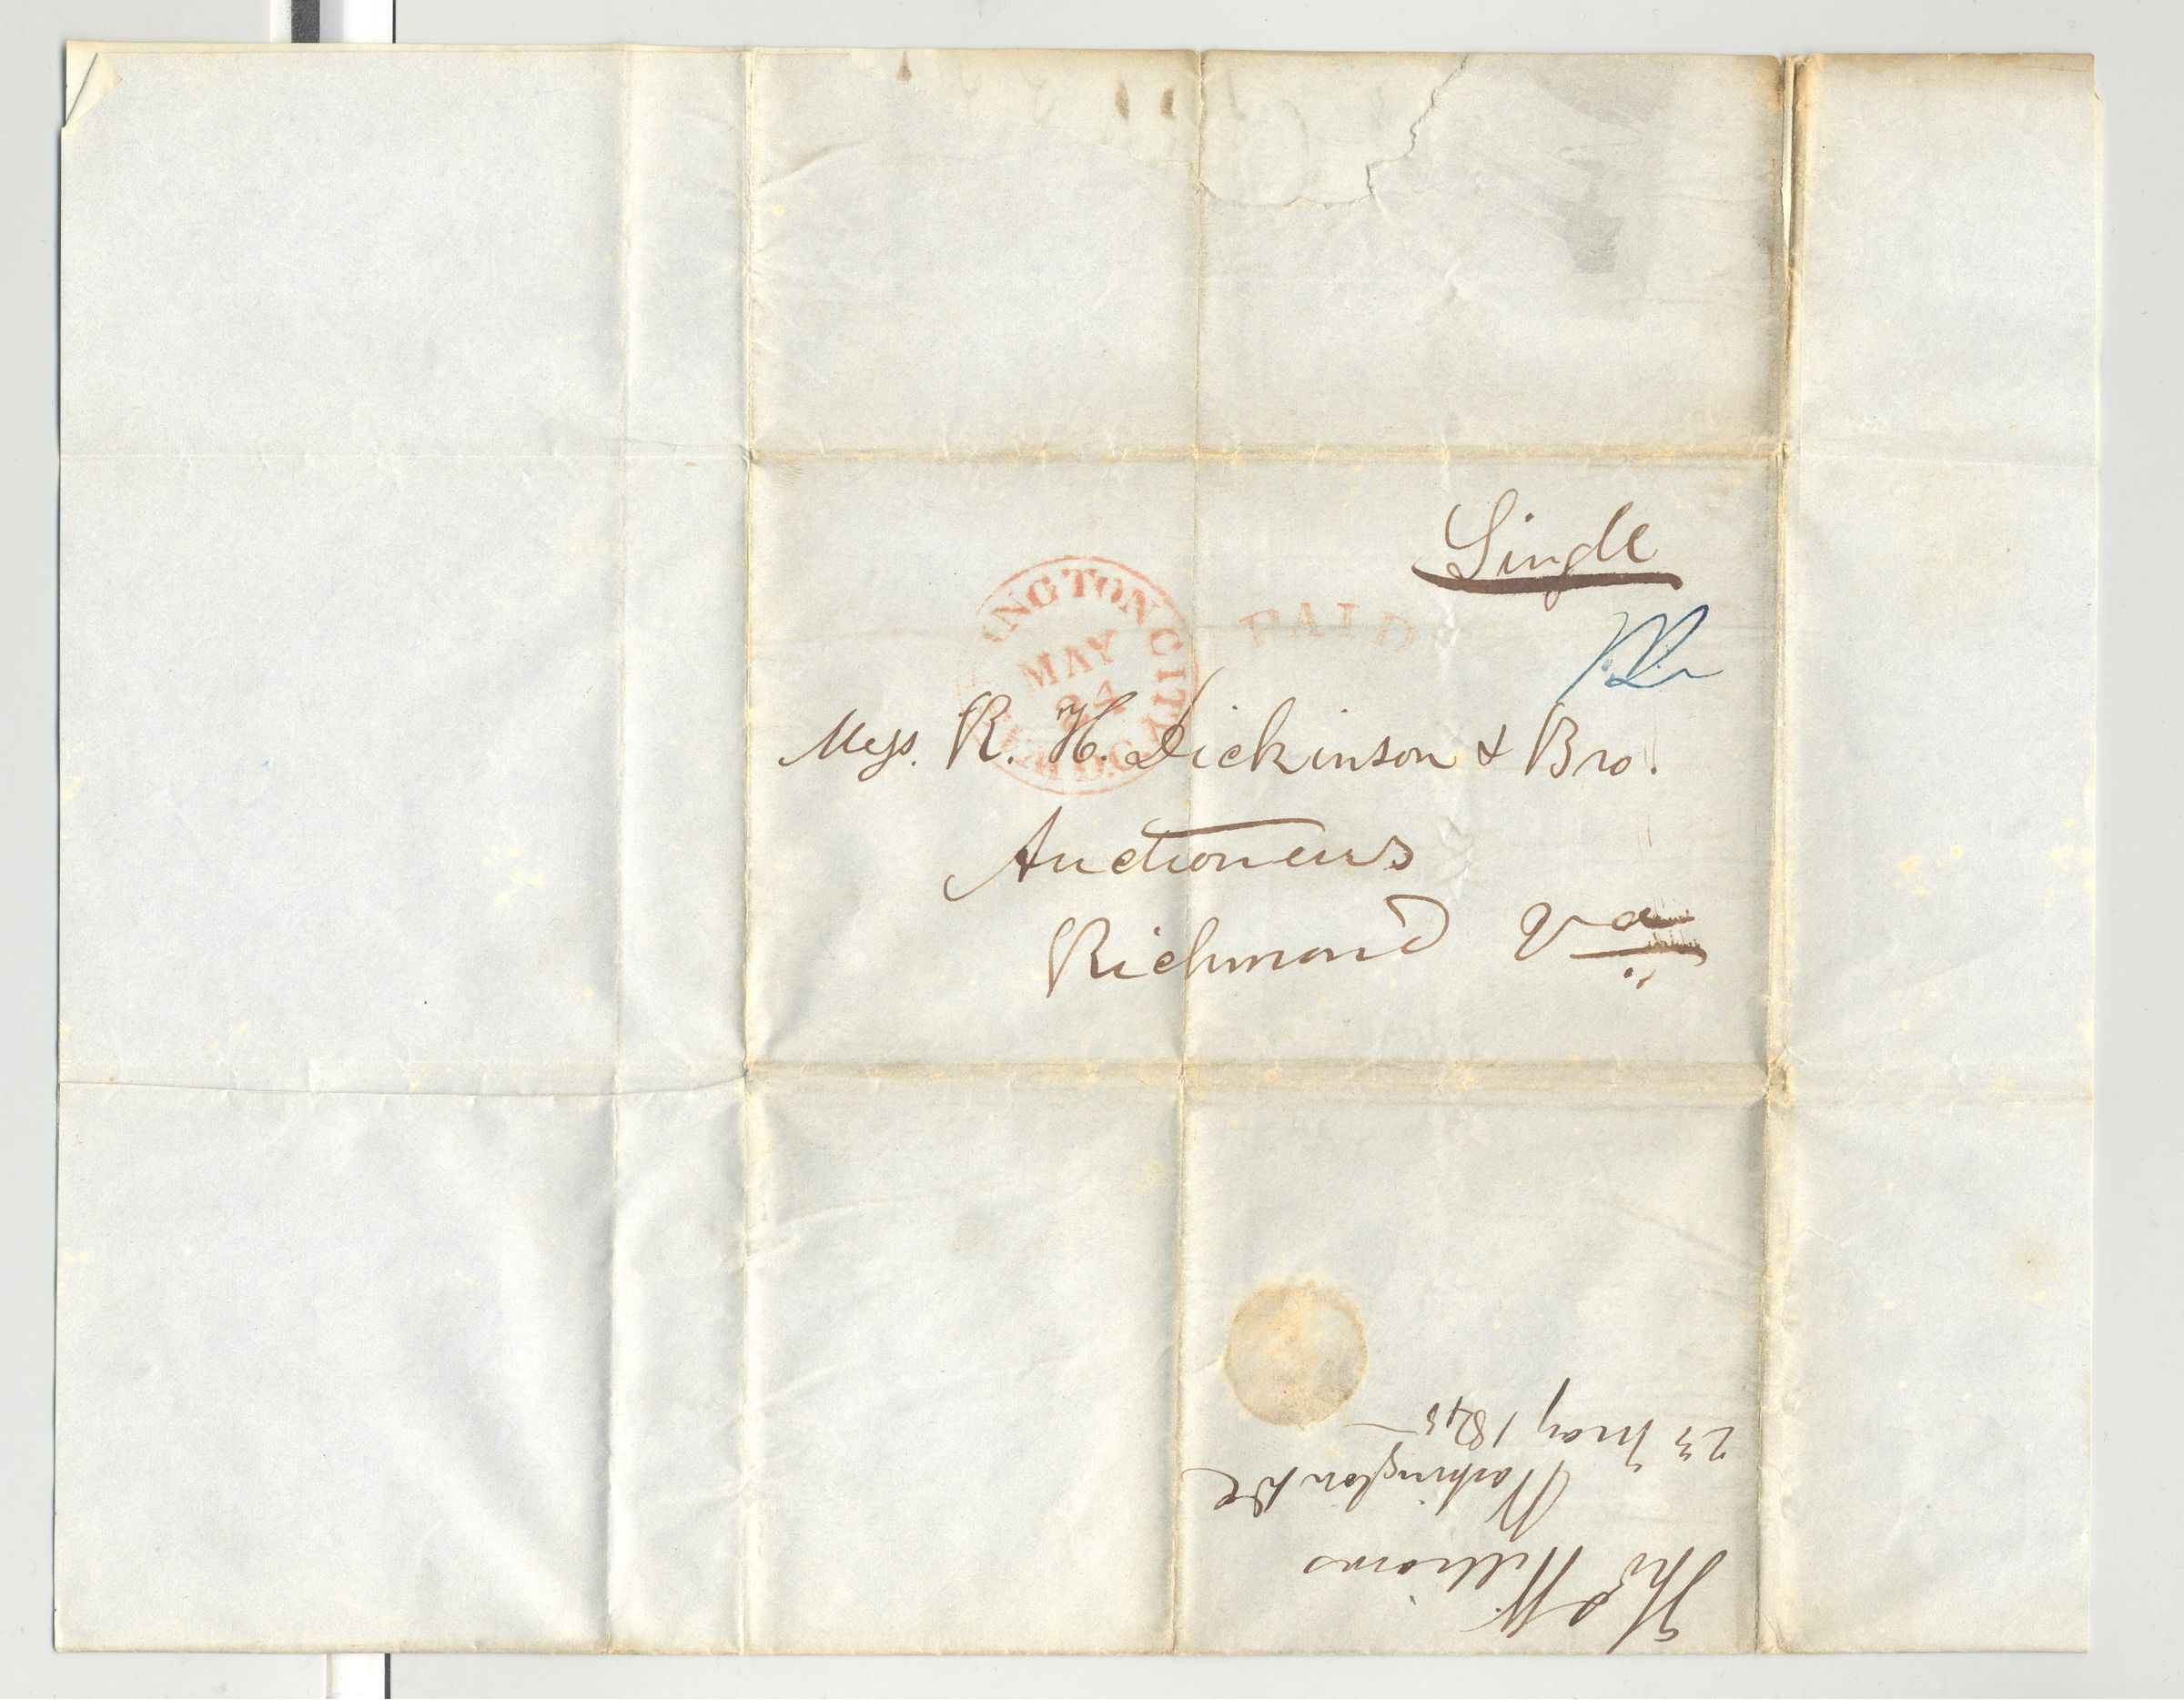 Single
WASHINGTON CITY
MAY
24
D.C.
PAID
Mess. R. H. Dickinson & Bro.
Auctioneers
Richmond Va
Thos Williams
Washington DC
23 May 1845